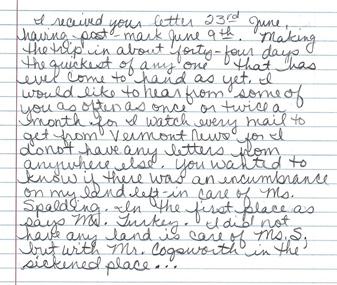 I received your letter 23rd June,
having post-mark June 9th. Making
the trip in about forty-four days
the quickest of any one that has
ever come to hand as yet. I
would like to hear from some of
you as often as once or twice a
month for I watch every mail to
get from Vermont News for I
donot have any letters from
anywhere else. You wanted to
know if there was an incumbrance
on my land left-in care of Ms.
Spalding. In the first place as
says Md. Turkey. I did not
have any land is care of Ms. S,
but with Mr. Cogsworth in the
sickened place...